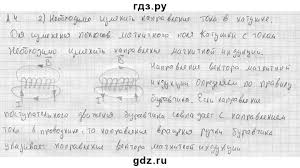 гдз.ру
№ 4 2) Необходимо изменить направление тока в катушке.
Для изменения полюсов магнитного поля катушки с током
Необходимо изменить направление магнитной индукции.
B B
Направление
вектора магнитной
индукции определяем по правилу
буравчика. Если направление
поступательного движения буравчика совпадает с направлением
тока в проводнике, то направление вращения ручки буравчика
указывает направление вектора магнитной индукции
gdz.ru